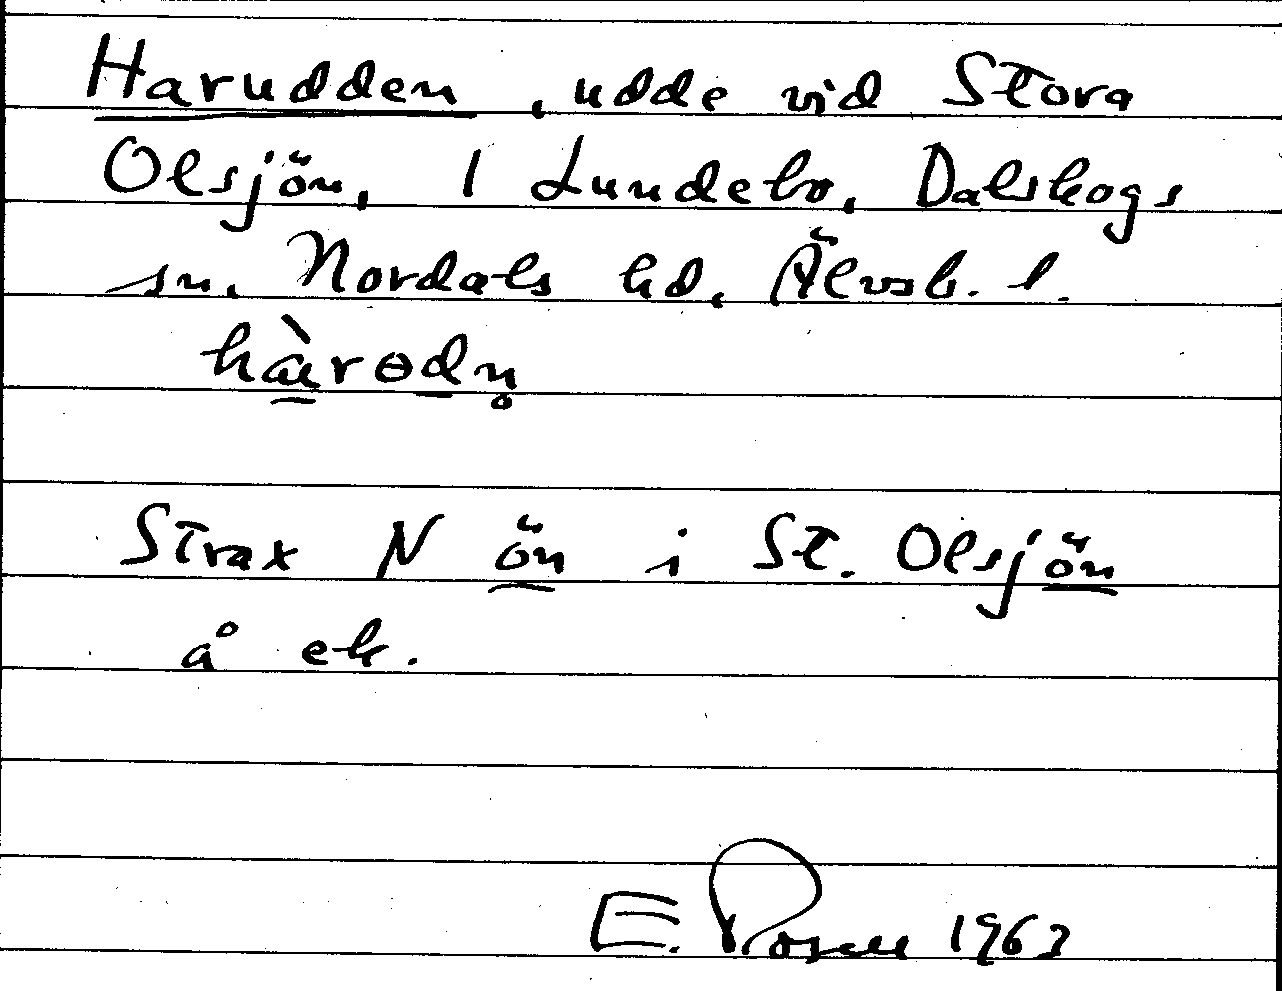 Harudden, udde vid Stora
Olsjön, 1 Lundebo, Dalskogs
sn, Nordals hd, Älvsb. l.
hàrɵdn̥
Strax N ön i St. Olsjön
å ek.
E. Rosell 1963